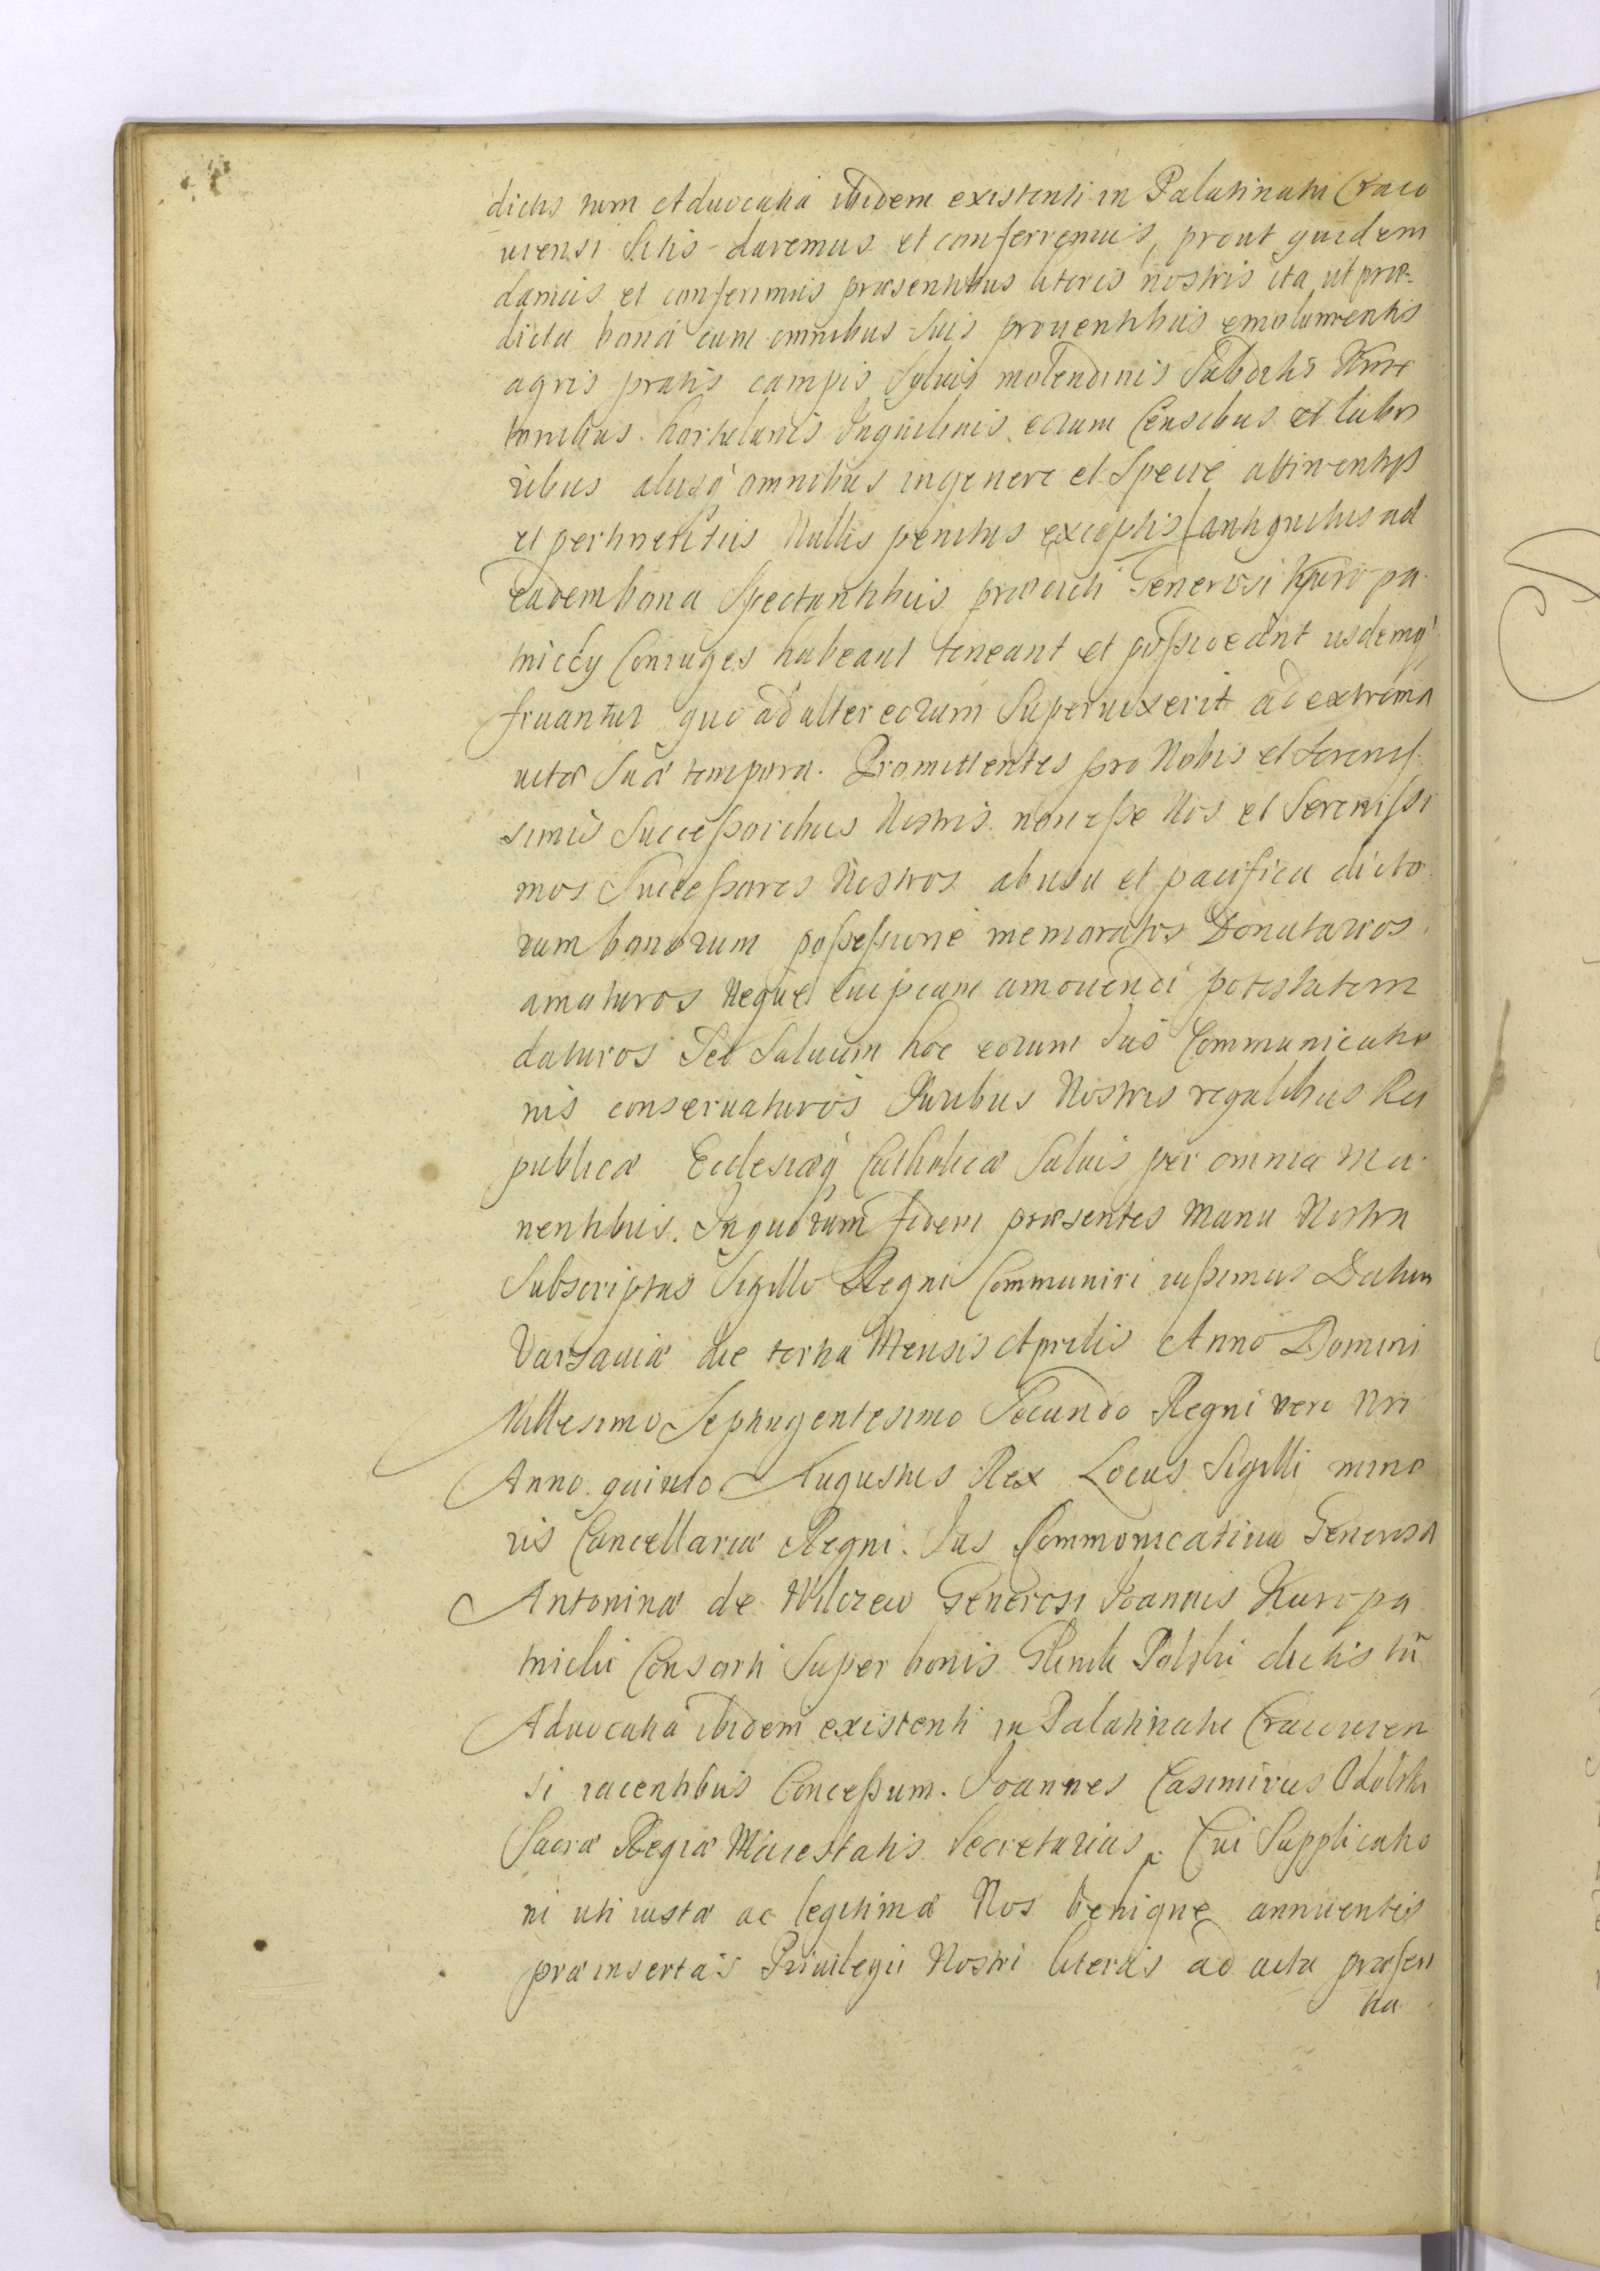 dictis tum Advocatia ibidem existenti in Palatinatu Craco
viensi Sitis daremus et conferremus, prout quidem
damus et conferimus præsentibus literis nostris ita ut præ-
dicta bona cum omnibus suis proventibus emolumentis
agris pratis campis Sylvis molendinis Subditis Kme
tonibus hortulanis Inquilinis eorum Censibus et labo
ribus aliisq omnibus in genere et Specie attinentiis
et pertinentiis Nullis penitus exceptis antiquitus ad
eadem bona Spectantibus prædicti Generosi Kuropa
tniccy Coniuges habeant teneant et possideant iisdemq
fruantur quo ad alter eorum Supervixerit ad extrema
vitæ Suæ tempora. Promittentes pro Nobis et Serenis
simis Successoribus Nostris non esse Nos et Serenissi
mos Successores Nostros ab usu et pacifica dicto
rum bonorum possessione memoratos Donatarios
amoturos Neque cuipiam amovendi potestatem
daturos Sed Salvum hoc eorum Ius Communicatio
nis conservaturos Iuribus Nostris regalibus Rei
publicæ Ecclesiæq Catholicæ Salvis per omnia ma
nentibus. In quorum fidem præsentes Manu Nostra
Subscriptas Sigillo Regni Communiri iussimus Datum
Varsaviæ die tertia Mensis Aprilis Anno Domini
Millesimo Septingentesimo Secundo Regni vero Nri
Anno quinto Augustus Rex Locus Sigilli mino
ris Cancellariæ Regni. Ius Communicativum Generosæ
Antoninæ de Wilczew Generosi Ioannis Kuropa
tnicki Consorti Super bonis Polski dictis tu
Advocatia ibidem existenti in Palatinatu Cracovien
si iacentibus Concessum. Ioannes Casimirus
Sacræ Regiæ Maiestatis Secretarius Cui Supplicatio
ni uti iustæ ac legitimæ Nos benigne annuentes
præinsertas Privilegii Nostri literas ad acta præsen
tia